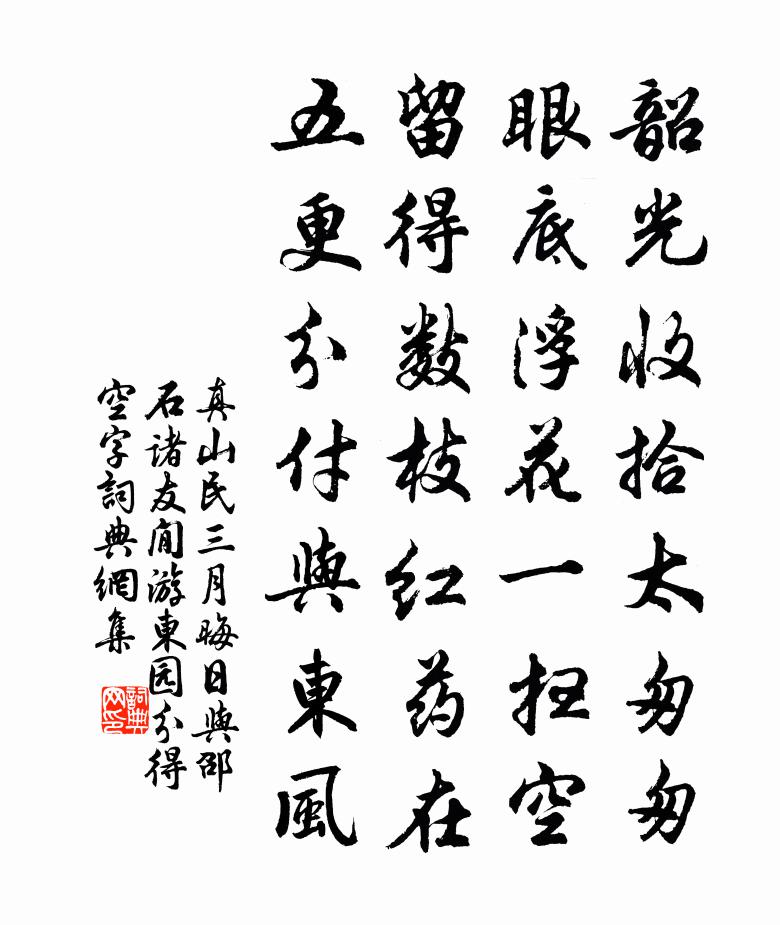 韶光收拾太匆匆
眼底浮花一扫空
留得数枝红药在
五更分付與東風
真山民三月晦日與邵
石诸友閒游東园分得
空字詞典網集
詞典网印